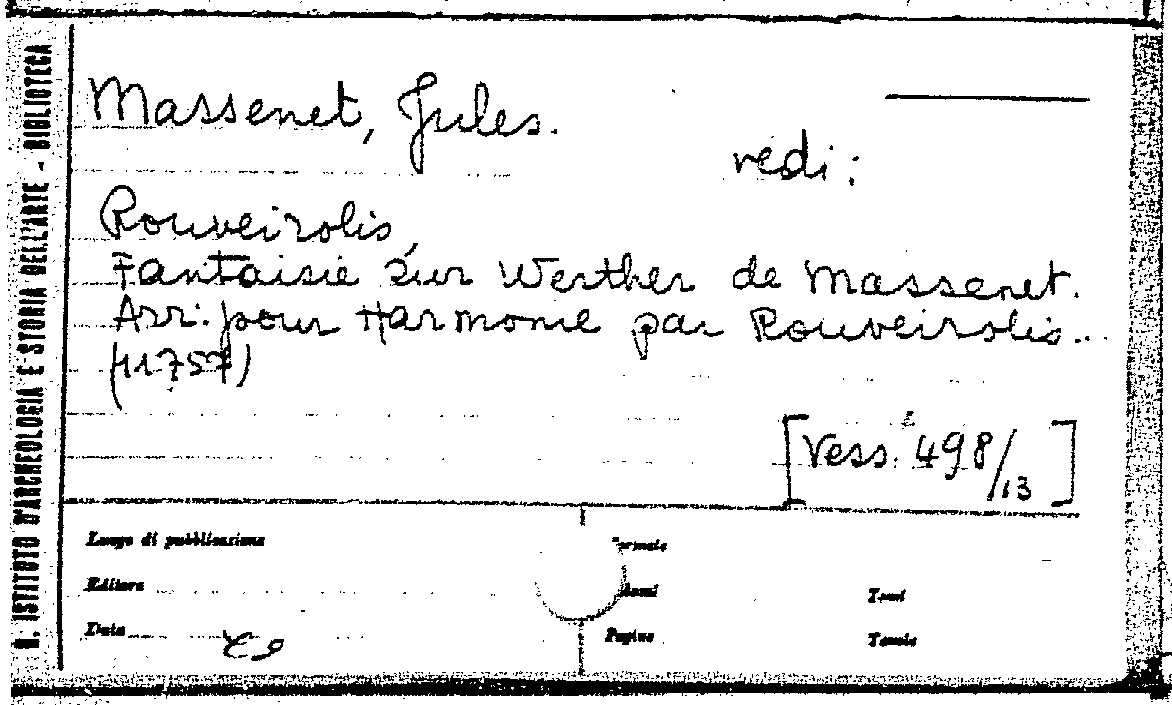 R. ISTITUTO D'ARCHEOLOGIA E STORIA DELL'ARTE - BIBLIOTECA
Massenet, Jules.
vedi:
Rouveirolis,
Fantaisie sur Werther de Massenet.
Arr. pour Harmonie par Rouveirolis...
(11757)
[Vess. 498/13]
Luogo di pubblicazione
Formato
Editore
Tomi
Data
Pagine
Tavole